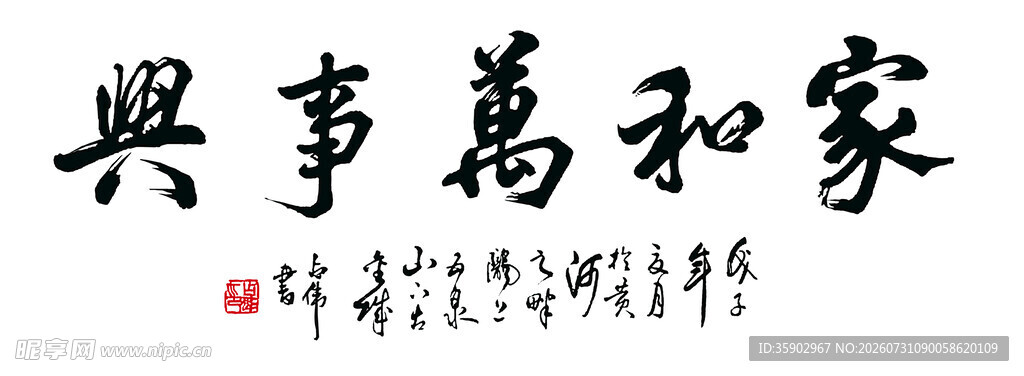 家和萬事興
戊子
年
夏月
於黄
河
之畔
陽上
五泉
山下古
金城
志伟
書
昵享网 www.nipic.cn
ID:35902967 NO:20260731090058620109